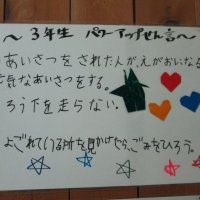 ～3年生 パワーアップせん言～
あいさつをされた人が、えがおになる
気なあいさつをする。
ろう下を走らない。
よごれている所を見かけたら、ごみをひろう。